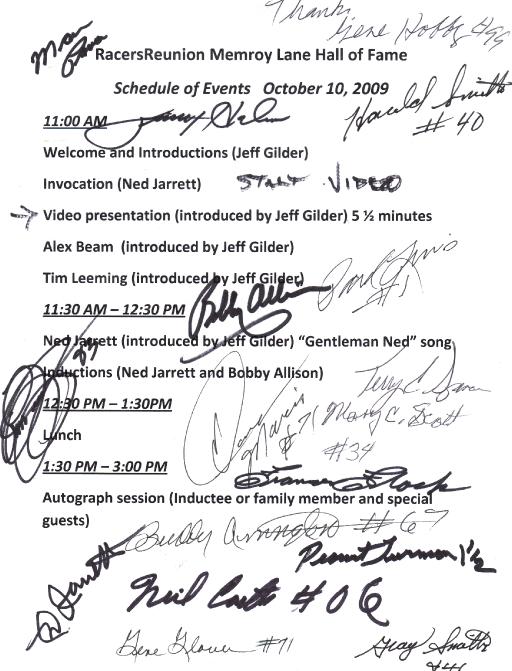 Thanks
Gene Hobby #99
RacersReunion Memroy Lane Hall of Fame
Schedule of Events October 10, 2009
Harold Smith
# 40
11:00 AM
Welcome and Introductions (Jeff Gilder)
Invocation (Ned Jarrett) START VIDEO
Video presentation (introduced by Jeff Gilder) 5 ½ minutes
Alex Beam (introduced by Jeff Gilder)
Tim Leeming (introduced by Jeff Gilder)
#1
11:30 AM – 12:30 PM
Bobby Allison
Ned Jarrett (introduced by Jeff Gilder) “Gentleman Ned” song
83
Inductions (Ned Jarrett and Bobby Allison)
12:30 PM – 1:30PM
Dave Marcis
#71
Mary C. Scott
#34
Lunch
1:30 PM – 3:00 PM
Autograph session (Inductee or family member and special
guests)
Buddy Arrington #67
Peanut Turman 1½
Neil #06
Gene Glover #71
Gray Smith
#46